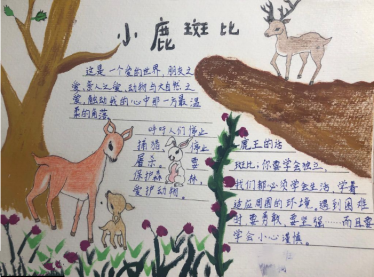 小鹿斑比
这是一个爱的世界，朋友之
爱，亲人之爱，动物与大自然之
爱，触动我的心中那一片最温
柔的角落。
呼吁人们停止
捕猎 停止
屠杀。 要
保护森 林，
爱护动物。
鹿王的话
斑比，你要学会独立，
我们都必须学会生活，学着
适应周围的环境，遇到困难
时要勇敢，要坚强……而且要
学会小心谨慎。